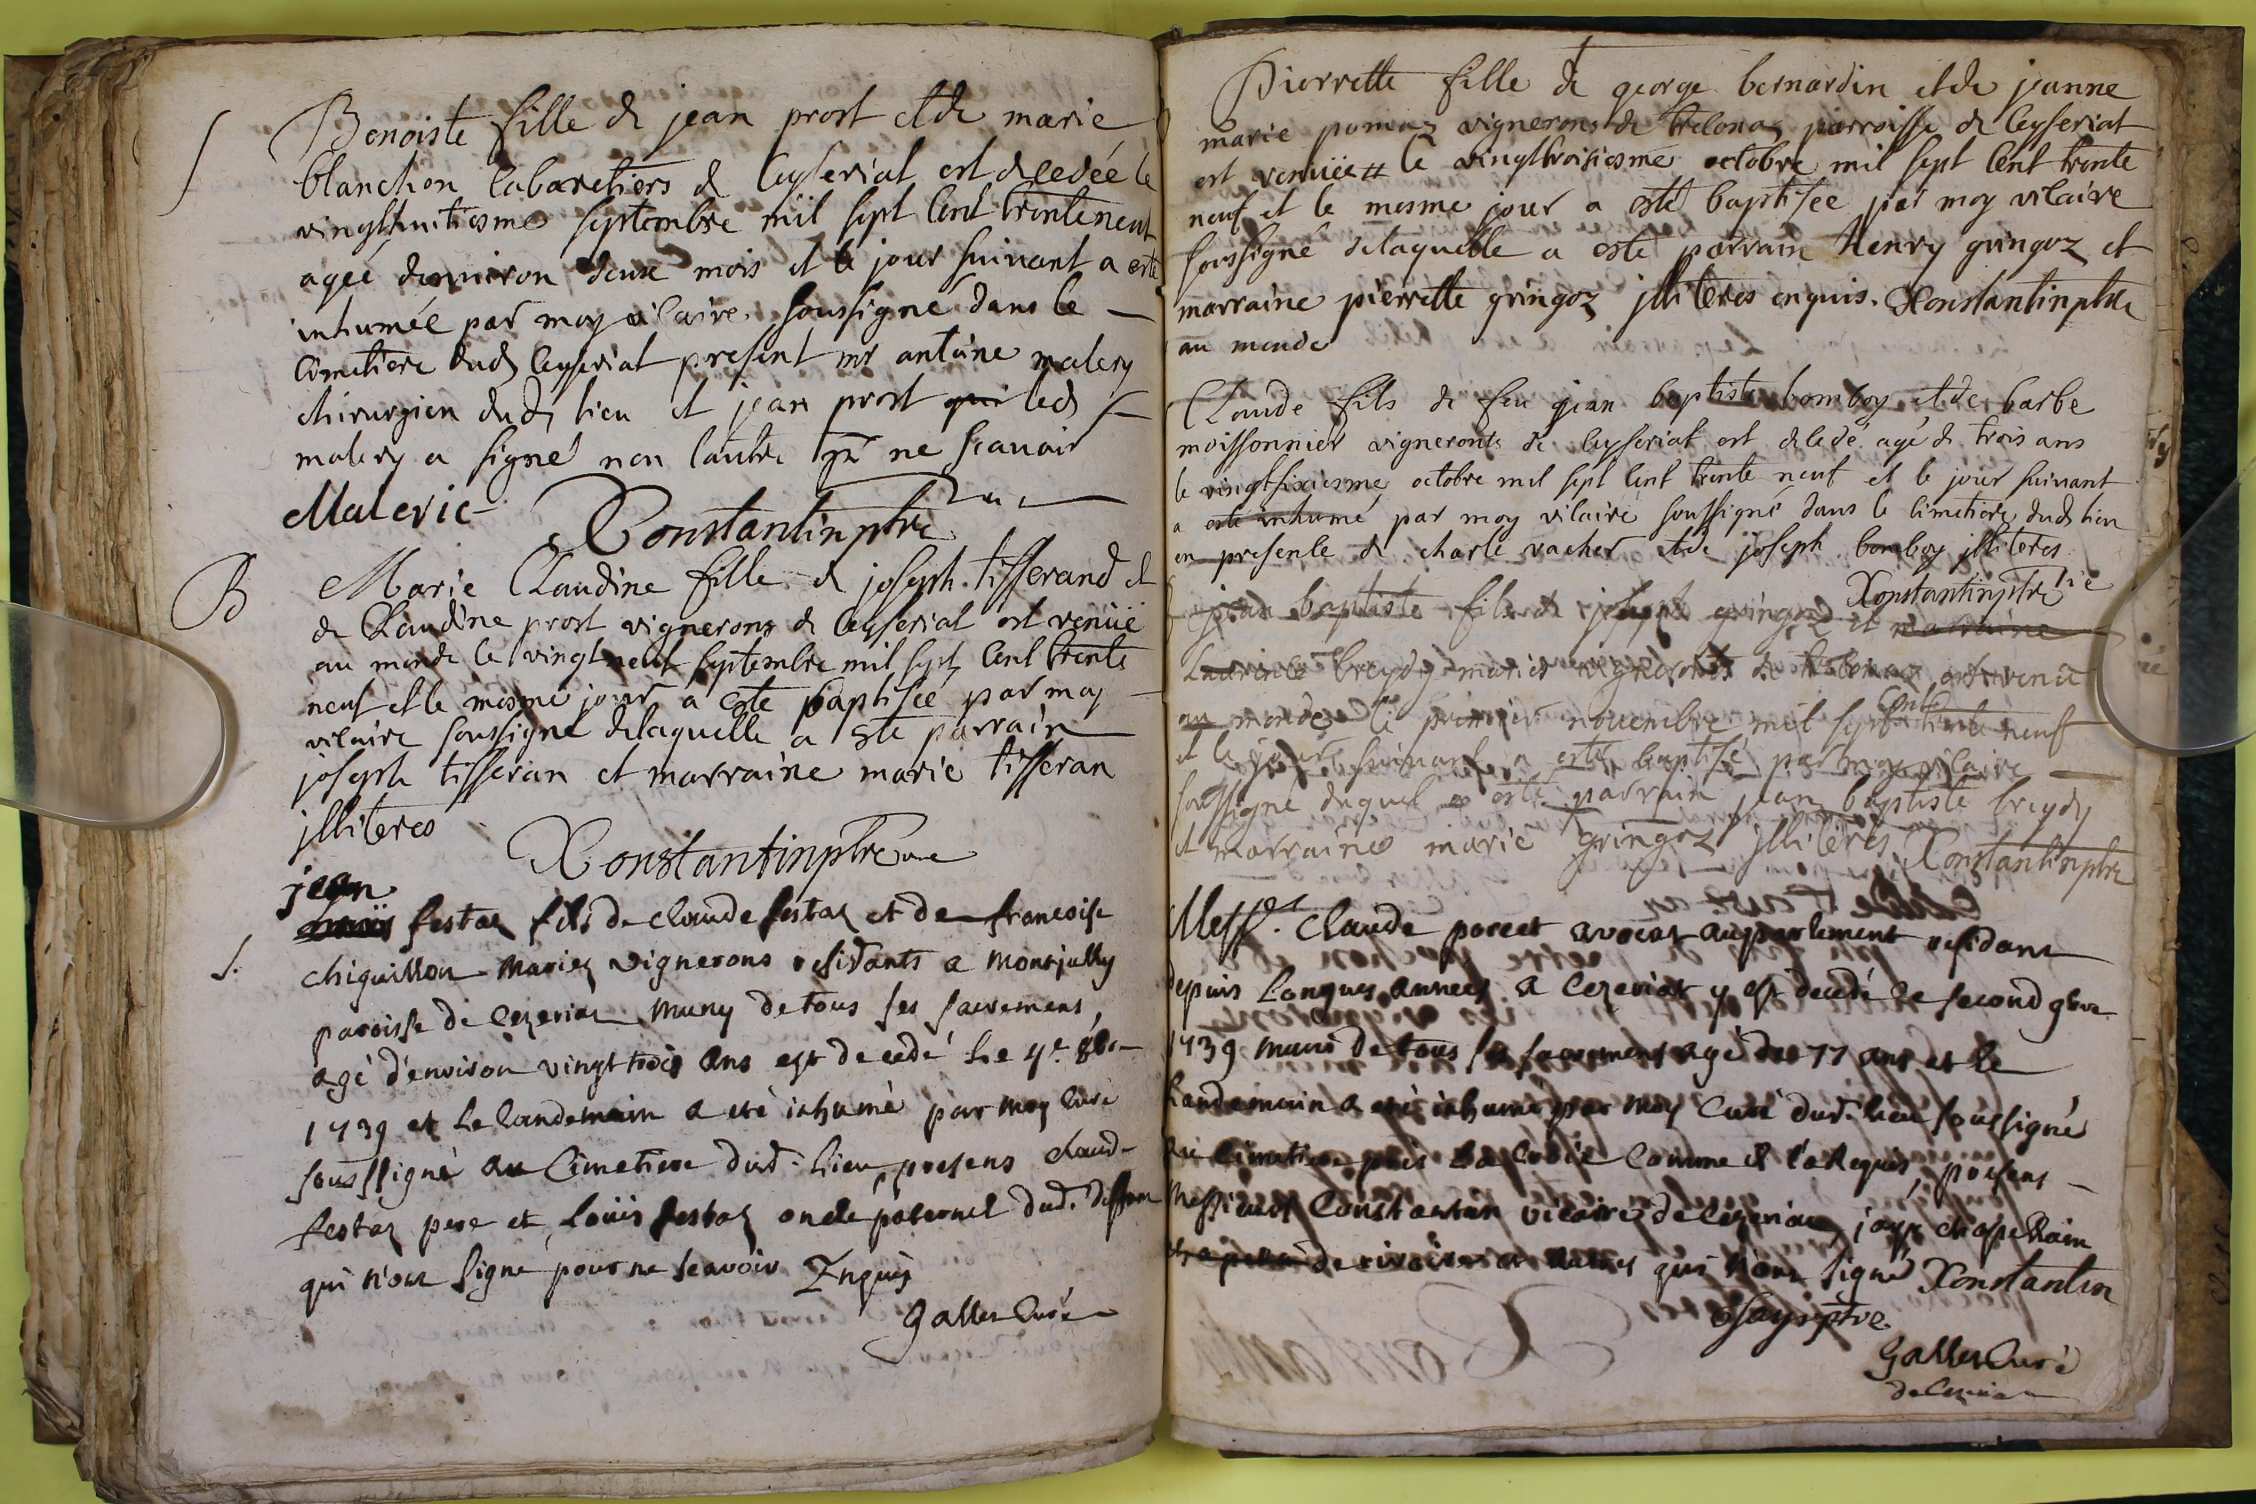 S
Benoiste fille de jean prost et de marie
blanchon Cabaretiers de Ceyseriat est decedée le
vingthuitiesme septembre mil sept Cent trente neuf
agée denviron deux mois et le jour suivant a esté
inhumée par moy vicaire soussigné dans le
Cimetiere dud Ceyseriat present mr antoine malery
chirurgien dud lieu et jean prost qui led
malery a signé non lautre pr ne scavoir
Malerie Constantin ptre
B
Marie Claudine fille de joseph tisserand et
de Claudine prost vignerons de Ceyseriat est venüe
au monde le vingtneuf septembre mil sept Cent trente
neuf et le mesme jour a este baptisée par moy
vicaire soussigné delaquelle a este parrain
joseph tisseran et marraine marie tisseran
jlliteres
Constantin ptre
jean
S.
festas fils de Claude festas et de francoise
chiguillon Mariez vignerons residants a Montjully
paroisse de Cezeriat Muny de tous ses sacremens,
agé d'environ vingt trois ans est decedé Le 4e 8bre
1739 et Le Landemain a eté inhumé par Moy Curé
soussigné au Cimetiere dud. Lieu, presens claude
festas pere et Loüis festas oncle paternel dud. deffunt
qui n'ont signé pour ne scavoir Enquis
Galles Curé
Pierrette fille de george bernardin et de jeanne
marie pomaz vignerons de trelonaz parroisse de Ceyseriat
est venüe # le vingttroisiesme octobre mil sept Cent trente
neuf et le mesme jour a esté baptisee par moy vicaire
soussigné delaquelle a esté parrain henry gringoz et
marraine pierrette gringoz jlliteres enquis. Constantin ptre
au monde
Claude fils de feu jean baptiste bomboy et de barbe
moissonnier vignerons de Ceyseriat est decedé agé de trois ans
le vingtsixiesme octobre mil sept Cent trente neuf et le jour suivant
a esté inhumé par moy vicaire soussigné dans le Cimetiere dud lieu
en presence de charle vacher et de joseph bomboy jlliteres
Constantin ptre
jean baptiste fils de joseph gringoz et marraine
Laurence breydy mariez vignerons de trelonaz est venu
au monde le premier novembre mil sept Cent trente neuf
et le jour suivant a esté baptisé par moy vicaire
soussigné duquel a esté parrain jean baptiste breydy
et marraine marie gringoz jlliteres Constantin ptre
Messre. Claude porcet avocat au parlement residant
depuis Longues années a Cezeriat y est decedé Le second 9bre
1739 Muni de tous ses sacremens agé de 77 ans et le
Landemain a eté inhumé par Moy Curé dud. Lieu soussigné
au Cimetiere près La Croix Comme il l'a Requis, presens
Messieurs Constantin vicaire de Cezeriat, jayr chapellain
de rivoires qui n'ont signé Constantin
jayr ptre.
Galles Curé
de Cezeriat